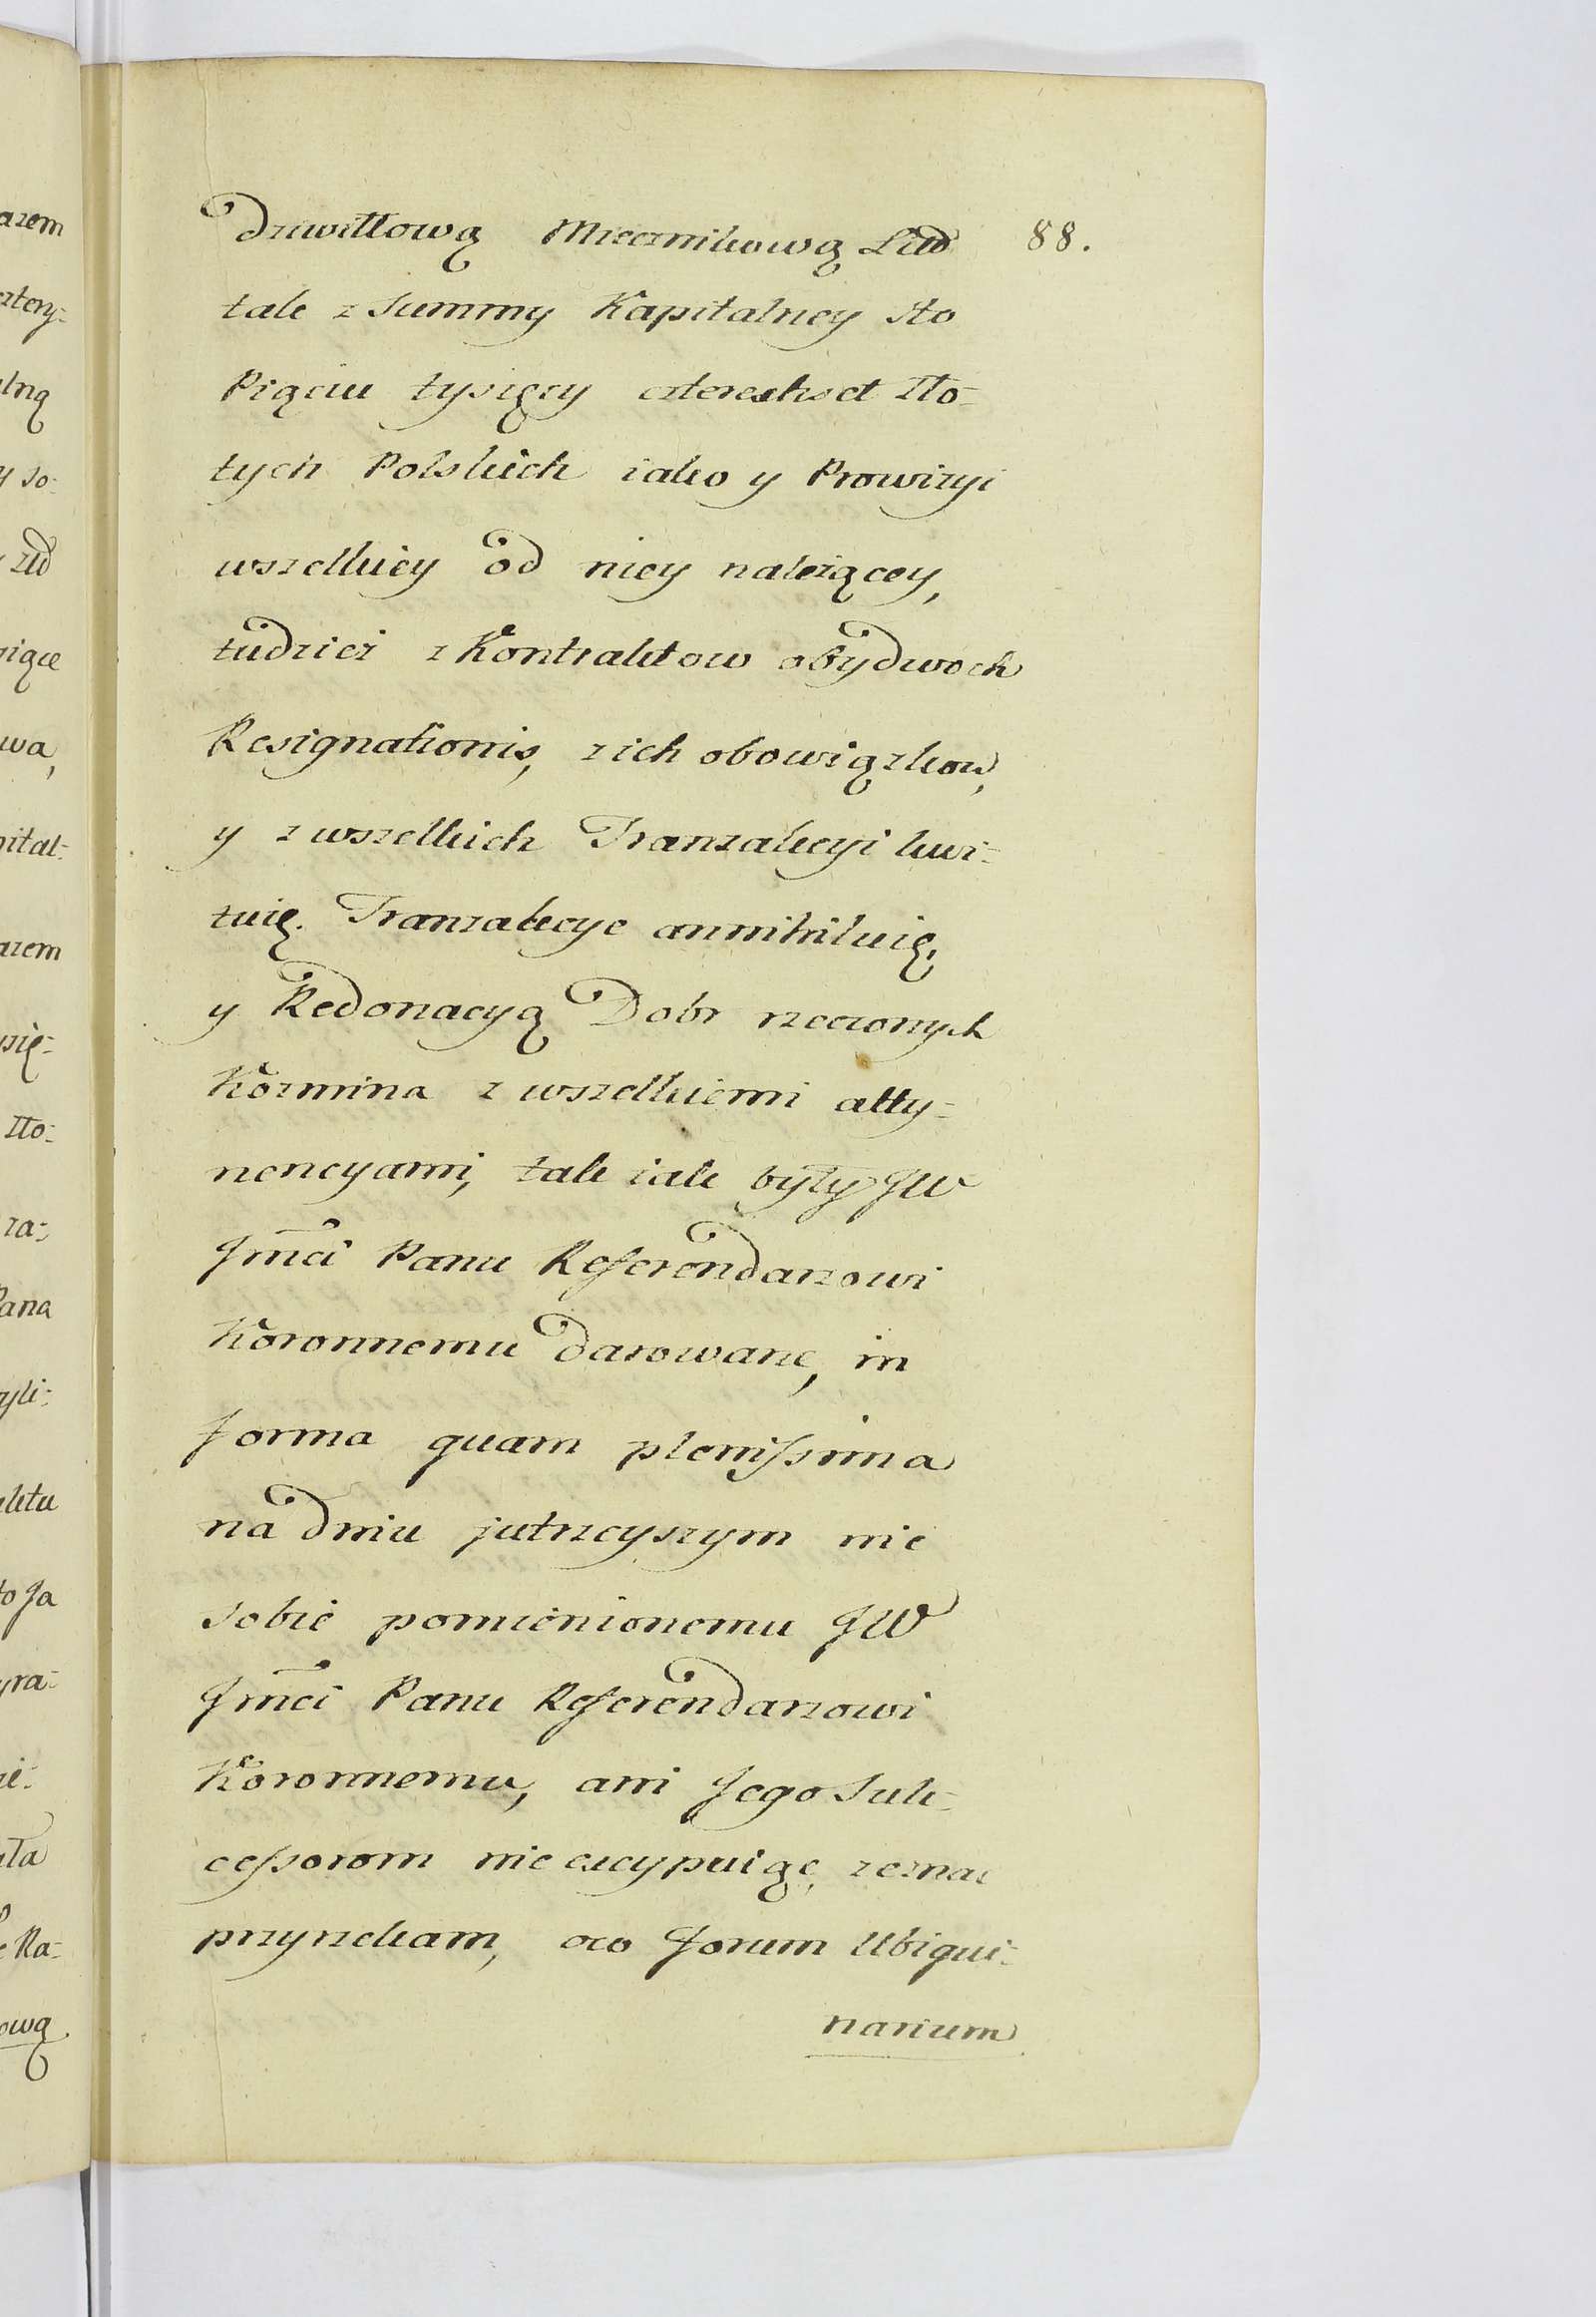 Druwiłłową Miecznikową Lid 88.
tak z Summy Kapitalney sto
Piąciu tysięcy czterechset zło-
tych Polskich iako y Prowizyi
wszelkiey od niey należącey,
tudzież z Kontraktow obydwoch
Resignationis, z ich obowiązkow,
y z wszelkich Tranzakcyi kwi-
tuię. Tranzakcye annihiluię,
y Redonacyą Dobr rzeczonych
Kozmina z wszelkiemi atty-
nencyami, tak iak były JW
Jmći Panu Referendarzowi
Koronnemu darowane, in
forma quam plenissima
na dniu jutrzeyszym nie
sobie pomienionemu JW
Jmći Panu Referendarzowi
Koronnemu, ani Jego Suk-
cessorom nie excypuiąc, zeznać
przyrzekam, oco forum Ubiqui-
narium
azem
cztery-
alną
y so-
zł
wa,
pital-
azem
się-
zło-
za-
Pana
yli-
ktu
to Ja
yra-
ie-
ła
Ra-
ową